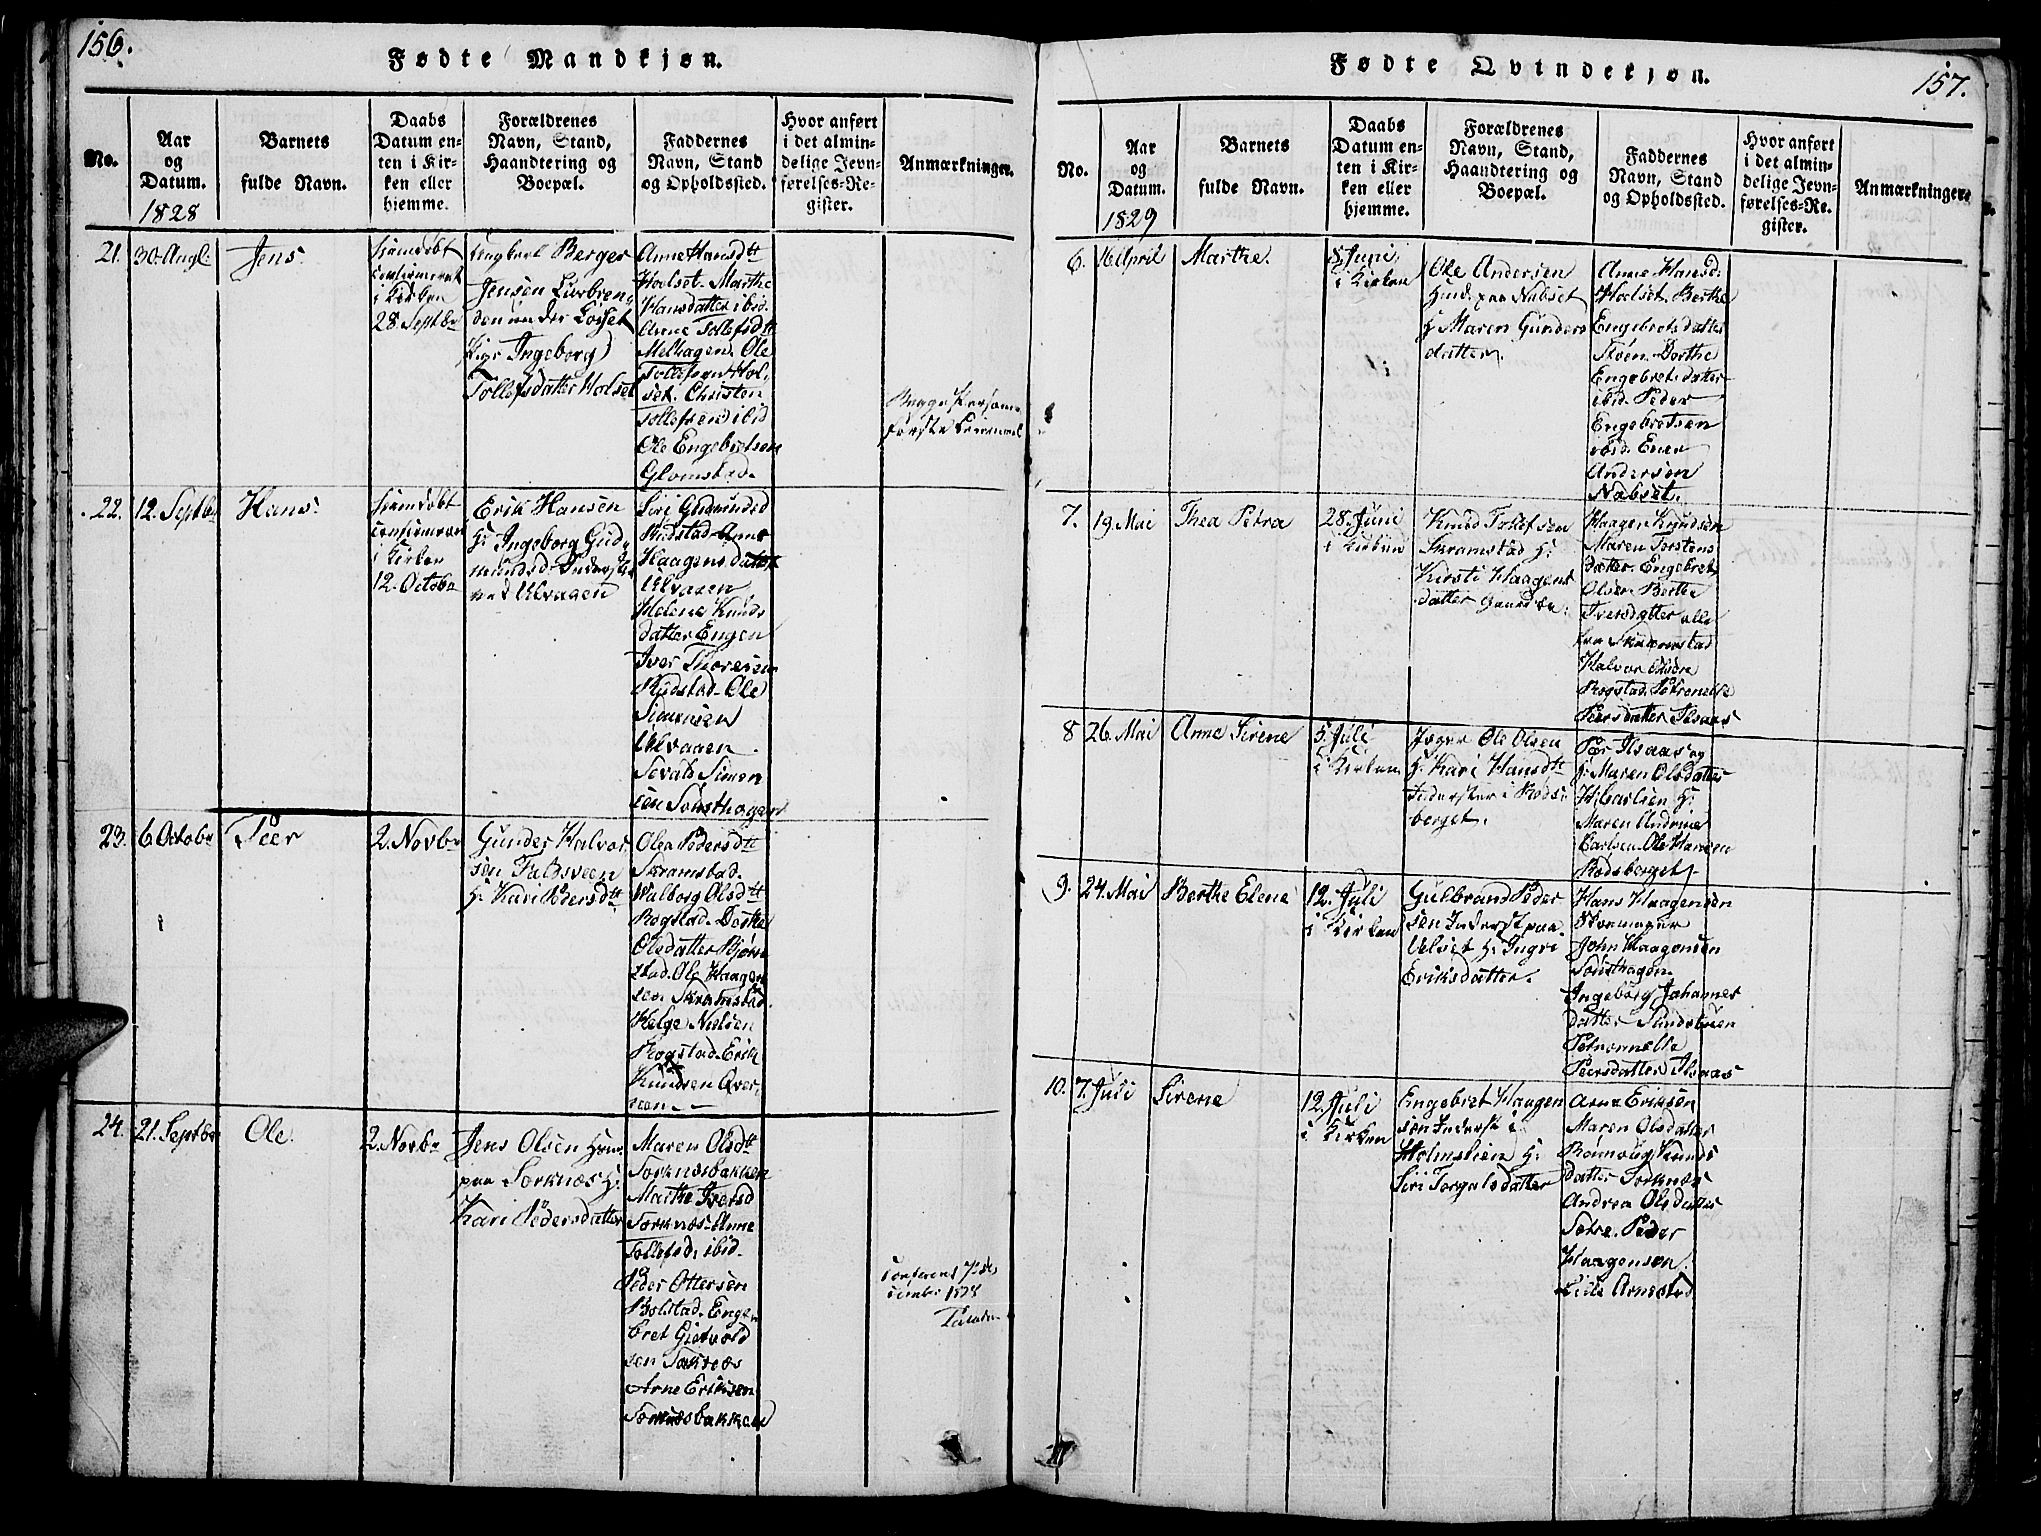 156.
Fødte Mandkjøn.
No.
Aar
og
Datum.
1828
Barnets
fulde Navn.
Daabs
Datum en-
ten i Kir-
ken eller
hjemme.
Forældrenes
Navn, Stand,
Haandtering og
Boepæl.
Faddernes
Navn, Stand
og Opholdssted.
Hvor anført
i det almin-
delige Jevn-
førelses-Re-
gister.
Anmærkninger.
21.
30. Augt:
Jens.
hjemdøbt
confirmeret
i Kirken
28. Septbr
Ungkarl Berger
Jensen
den under Losset
Pige Ingeborg
Tollefsdatter Holset
Anne Hansdtt
Holset. Marthe
Hansdatter ibid.
Anne Tollefsdtt
Melhagen. Ole
Tollefsen Hol,
set. Christen
Tollefsen ibid
Ole Engebretsen
Glomstad.
Begge Personers
første Leiermaal
22.
12. Septbr
Hans.
hjemdøbt
confirmeret
i Kirken
12. Octobr
Erik Hansen
H: Ingeborg Gud,
mundsd: Inderster
ved Ulvagen
Siri Gudmundsd
Rudstad Anne
Haagensdatter
Ulvagen
Helene Knuds
datter Engen
Iver Thoresen
Rudstad. Ole
Simensen
Ulvagen
Sevald Simen
sen Sønsthagen
23.
6. Octobr
Peer
2. Novbr
Gunder Halvor
sen Faldsveen
H: Kari Pedersdtt
Olea Pedersdtt
Skramstad.
Walborg Olsdtt
Rogstad. Dorthe
Olsdatter Bjørn
stad. Ole Haagen
sen Skramstad.
Helge Nielsen
Rogstad. Erik
Knudsen Øver
seen.
24.
21. Septbr
Ole.
2. Novbr
Jens Olsen Huus
paa Sorknæs H:
Kari Pedersdatter
Maren Olsdtt
Sorknæsbakken
Marthe Iversd
Sorknæs. Anne
Tollefsd. ibid.
Peder Ottersen
Bolstad. Enge
bret Gjetvold
sen Sorknæs
Arne Eriksen
Sorknæsbakken
Confereret 7 De
cember 1828
157.
Fødte Qvindekjøn.
No.
Aar
og
Datum.
1829
Barnets
fulde Navn.
Daabs
Datum en-
ten i Kir-
ken eller
hjemme.
Forældrenes
Navn, Stand,
Haandtering og
Boepæl.
Faddernes
Navn, Stand
og Opholdssted.
Hvor anført
i det almin-
delige Jevn-
førelses-Re-
gister.
Anmærkninger.
6.
16 April
Marthe.
8. Juni
i Kirken
Ole Andersen
Huus. paa Nabset
H: Maren Gunders
datter.
Anne Hansd.
Hoelset. Berthe
Engebretsdatter
Stoen. Dorthe
Engebretsdatter
ibid. Peder
Engebretsen
ibid. Even
Andersen
Nabset.
7.
19. Mai
Thea Petra
28. Juni
i Kirken
Knud Tollefsen
Skramstad H:
Kirsti Haagens
datter Gaardbr:
Haagen Knudsen
Maren Torstens
datter. Engebret
Olsen. Berthe
Iversdatter alle
fra Skramstad
Halvor Olsen
Rogstad. Petronelle
Peersdatter Ilsaas
8
26. Mai
Anne Sirene
5. Juli
i Kirken
Jæger Ole Olsen
H: Kari Hansdtt
Inderster i Rods
berget.
Per Ilsaas og
H: Maren Olsdatter
H: Carlsen H:
Maren Andrine
Carlsen. Ole Hansen
Rodsberget
9.
24. Mai
Berthe Elene
12. Juli
i Kirken
Gulbrand Peder
sen Inderst paa
Ulset H: Ingri
Eriksdatter.
Hans Haagensen
Skomager
John Haagensen
Sønsthagen
Ingeborg Johannes
datter Sundstuen
Petronnelle
Peersdatter Ilsaas
10.
7. Juli
Sirene
12. Juli
i Kirken
Engebret Haagen
sen Inderst i
Holmslien H:
Siri Torgalsdatter
Arne Eriksen
Maren Olsdatter
Rønnoug Knuds
datter Sorknæs
Andrea Olsdatter
Sætre. Peder
Haagensen
Lille Arnestad